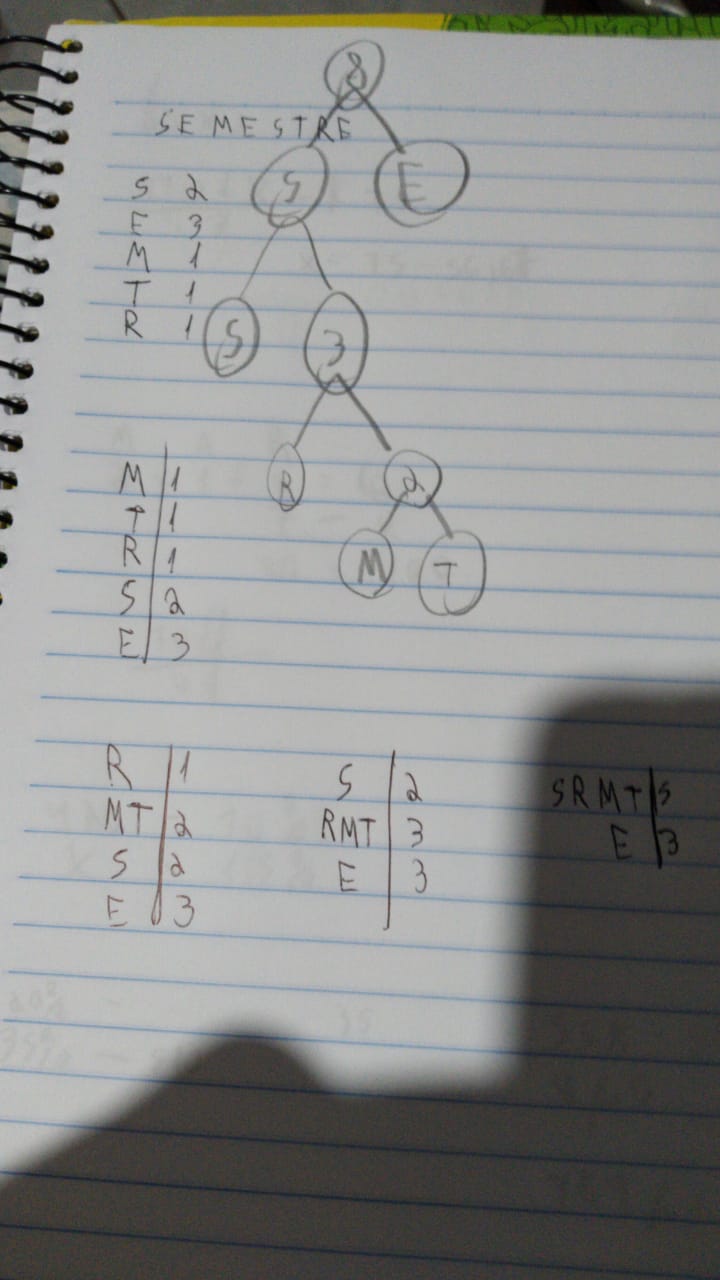 8
SEMESTRE
5 E
S 2
E 3
M 1
T 1
R 1
S 3
R 2
M T
M 1
T 1
R 1
S 2
E 3
R 1
MT 2
S 2
E 3
S 2
RMT 3
E 3
SRMT 5
E 3